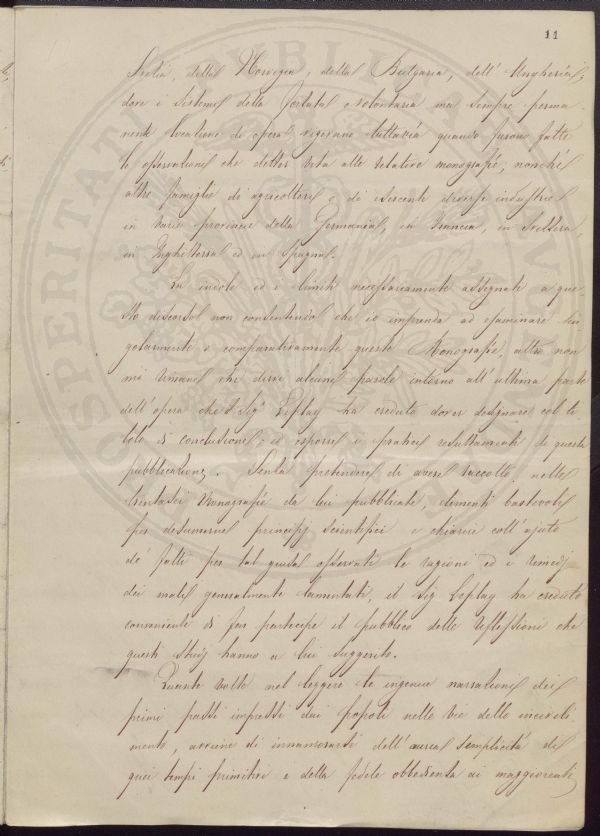 11
Svezia, della Norvegia, della Bulgaria, dell'Ungheria,
dove i sistemi della forzata o volontaria ma sempre perma
nente locazione di opera vigevano tuttavia quando furono fatte
le osservazioni che dettero vita alle relative monografie; nonché
altre famiglie di agricoltori e di esercenti diverse industrie
in varie provincie della Germania, in Francia, in Svizzera,
in Inghilterra ed in Spagna.
La indole ed i limiti necessariamente assegnati a que
sto discorso non consentendo che io imprenda ad esaminare sin
golarmente o comparativamente queste Monografie, altro non
mi rimane che dirvi alcune parole intorno all'ultima parte
dell'opera che il Sig.r Leplay ha creduto dover designare col ti
tolo di conclusione, ed esporre i pratici resultamenti di questa
pubblicazione. Senza pretendere di avere raccolto nelle
trentasei Monografie da lui pubblicate, elementi bastevoli
per desumerne principj scientifici e chiarire coll'ajuto
de' fatti per tal guisa osservati le ragioni ed i rimedj
dei mali generalmente lamentati, il Sig Leplay ha creduto
conveniente di far partecipe il pubblico delle riflessioni che
questi studj hanno a lui suggerito.
Quante volte nel leggere le ingenue narrazioni dei
primi passi impressi dai popoli nelle vie dello incivili
mento, avviene di innamorarsi dell'aurea semplicità di
quei tempi primitivi e della fedele obbedienza ai maggiorenti